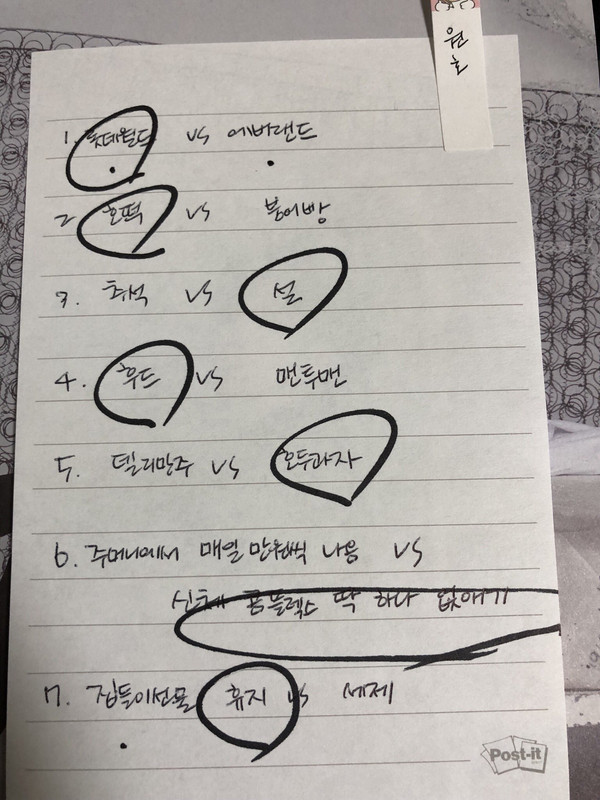 원호
1. 롯데월드 vs 에버랜드
2 호떡 vs 붕어빵
3. 추석 vs 설
4. 후드 vs 맨투맨
5. 델리만쥬 vs 호두과자
6. 주머니에서 매일 만원씩 나옴 vs
신체 콤플렉스 딱 하나 없애기
7. 집들이선물 휴지 vs 세제
Post-it